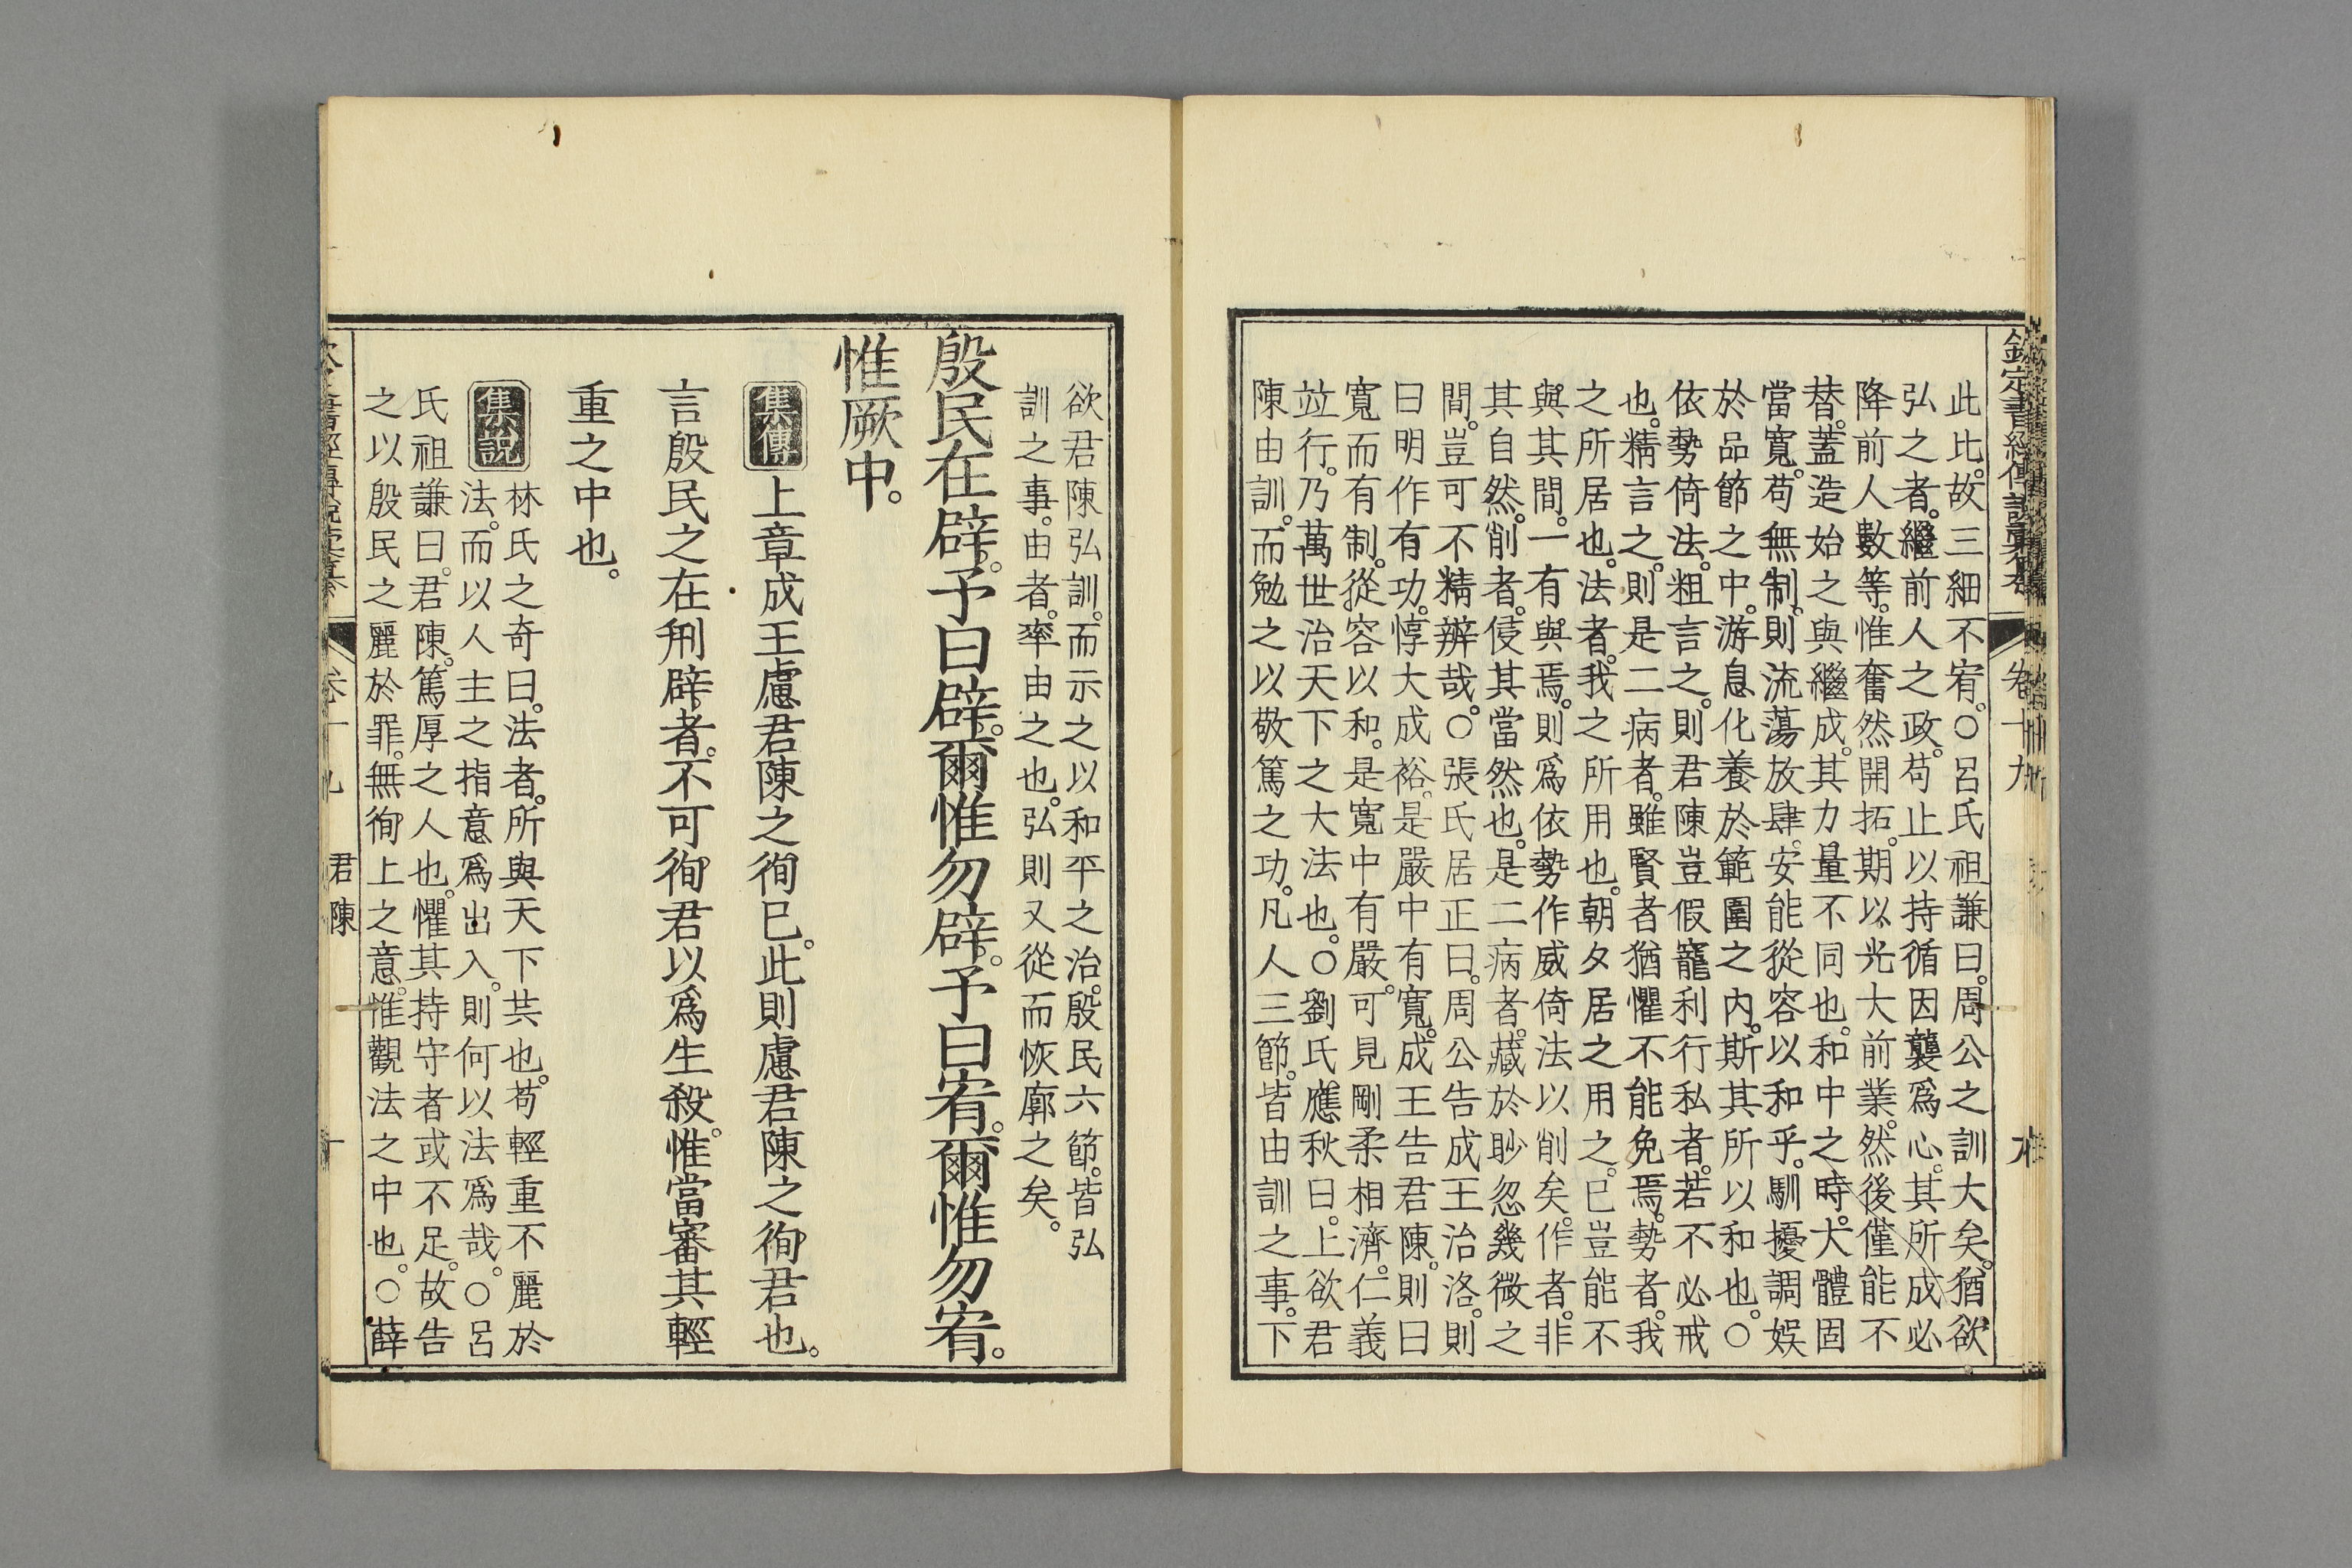 欽定書經傳說彙纂
卷十九
此比。故三細不宥。○呂氏祖謙曰。周公之訓大矣。猶欲
弘之者。繼前人之政。苟止以持循因襲爲心。其所成必
降前人數等。惟奮然開拓。期以光大前業。然後僅能不
替。蓋造始之與繼成。其力量不同也。和中之時。大體固
當寬。苟無制。則流蕩放肆。安能從容以和乎。馴擾調娛
於品節之中。游息化養於範圍之內。斯其所以和也。○
依勢倚法。粗言之。則君陳豈假寵利行私者。若不必戒
也。精言之。則是二病者。雖賢者猶懼不能免焉。勢者。我
之所居也。法者。我之所用也。朝夕居之用之。已豈能不
與其間。一有與焉。則爲依勢作威倚法以削矣。作者。非
其自然。削者。侵其當然也。是二病者。藏於眇忽幾微之
間。豈可不精辨哉。○張氏居正曰。周公告成王治洛。則
曰明作有功。惇大成裕。是嚴中有寬。成王告君陳。則曰
寬而有制。從容以和。是寬中有嚴。可見剛柔相濟。仁義
竝行。乃萬世治天下之大法也。○劉氏應秋曰。上欲君
陳由訓。而勉之以敬篤之功。凡人三節。皆由訓之事。下
欲君陳弘訓。而示之以和平之治。殷民六節。皆弘
訓之事。由者。率由之也。弘則又從而恢廓之矣。
殷民在辟。予曰辟。爾惟勿辟。予曰宥。爾惟勿宥。
惟厥中。
集傳 上章成王慮君陳之徇已。此則慮君陳之徇君也。
言殷民之在刑辟者。不可徇君以爲生殺。惟當審其輕
重之中也。
集說 林氏之奇曰。法者。所與天下共也。苟輕重不麗於
法。而以人主之指意爲出入。則何以法爲哉。○呂
氏祖謙曰。君陳。篤厚之人也。懼其持守者或不足。故告
之以殷民之麗於罪。無徇上之意。惟觀法之中也。○薛
書經傳說彙纂
卷十九
君陳